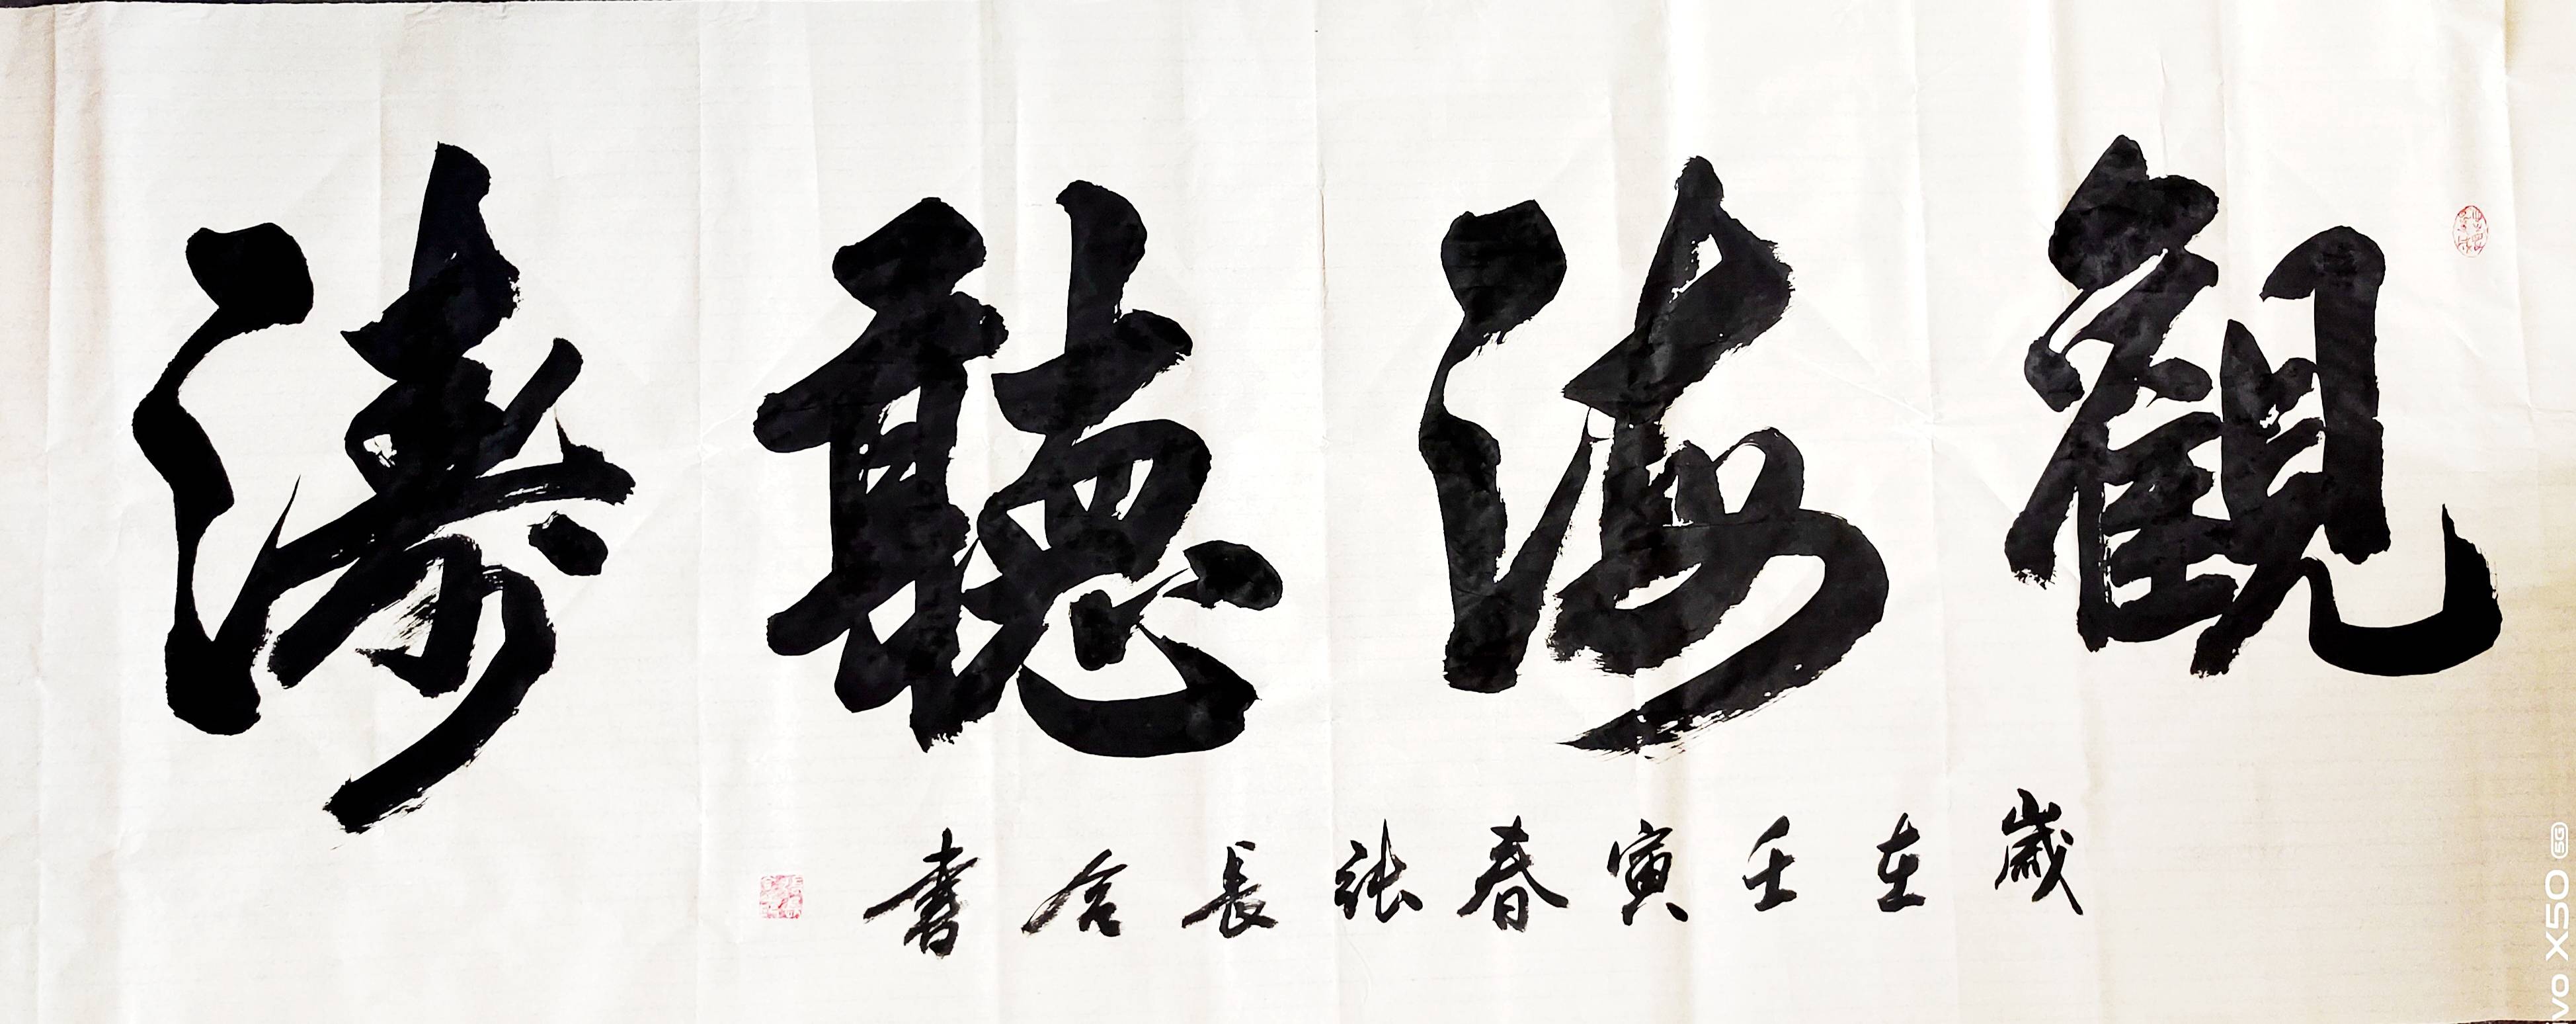 觀海聽濤
歲在壬寅春張長信書
vo X50 5G